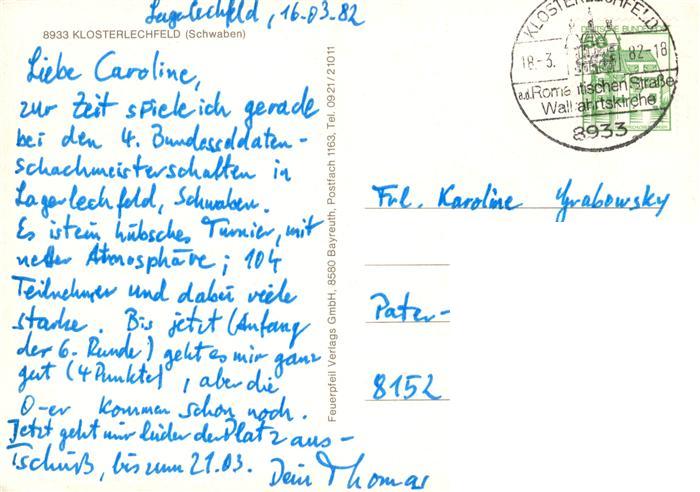 Lagerlechfeld, 16.03.82
8933 KLOSTERLECHFELD (Schwaben)
Liebe Caroline,
zur Zeit spiele ich gerade
bei den 4. Bundessoldaten-
schachmeisterschaften in
Lagerlechfeld, Schwaben.
Es ist ein hübsches Turnier, mit
netter Atmosphäre; 104
Teilnehmer und dabei viele
starke. Bis jetzt (Anfang
der 6. Runde) geht es mir ganz
gut (4 Punkte), aber die
0-er kommen schon noch.
Jetzt geht mir leider der Platz aus-
Tschüß, bis zum 21.03. Dein Thomas
Feuerpfeil Verlags GmbH, 8580 Bayreuth, Postfach 1163, Tel. 0921/21011
KLOSTERLECHFELD
18-3. 82-18
a.d. Romantischen Straße
Wallfahrtskirche
8933
DEUTSCHE BUNDESPOST
Frl. Karoline Grabowsky
Pater-
8152